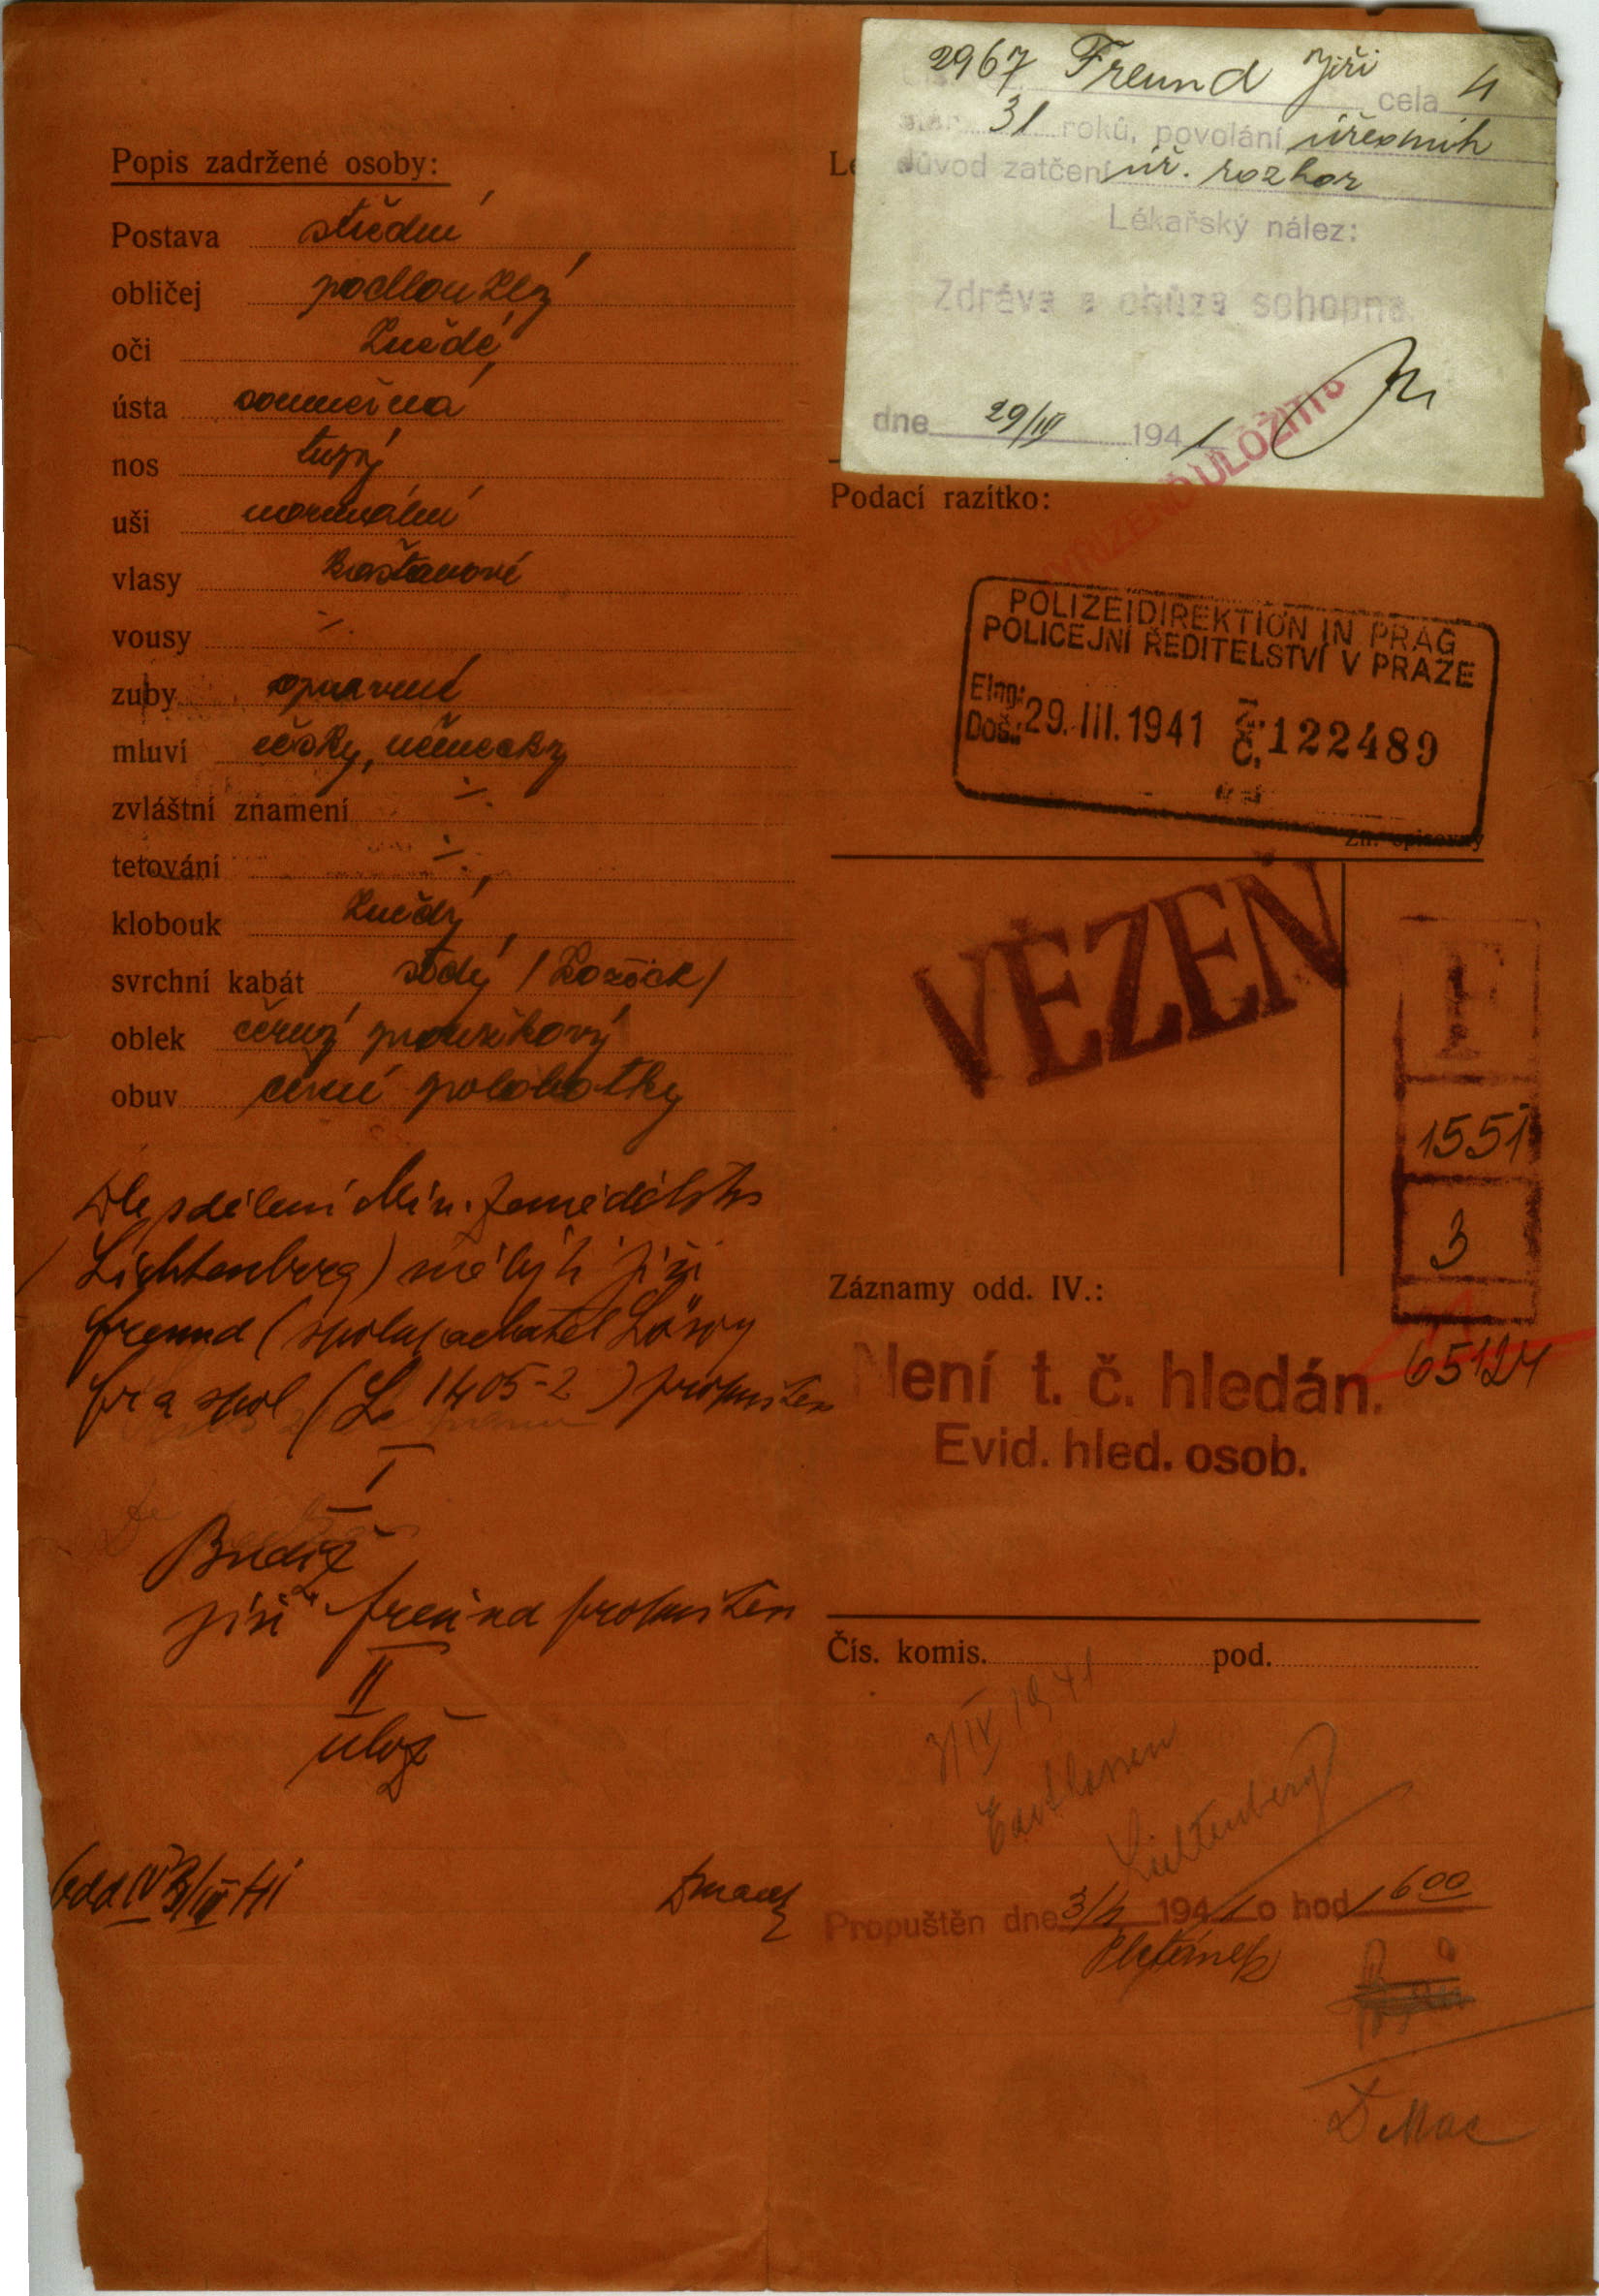 2967 Freund Jiří cela 4
31 roků, povolání úředník
důvod zatčení úř. rozkaz
Lékařský nález:
Zdráva a chůze schopna.
dne 29/III 1941
Popis zadržené osoby:
Postava střední
obličej podlouhlý
oči hnědé
ústa souměrná
nos tupý
uši normální
vlasy kaštanové
vousy -/.
zuby opravené
mluví česky, německy
zvláštní znamení -/.
tetování -/.
klobouk hnědý
svrchní kabát šedý /
oblek černý proužkový
obuv černé polobotky
Dle sdělení Min. zemědělství
Lichtenberg) má býti Jiří
Freund (spolupachatel
fr a spol (L 1405-2) propuštěn
I
Budiž
Jiří Freund propuštěn
II
ulož
odd IV 3/IV 41
Podací razítko:
VYŘÍZENO ULOŽITI
POLIZEIDIREKTION IN PRAG
POLICEJNÍ ŘEDITELSTVÍ V PRAZE
Elng:
Doš.: 29. III. 1941 Z. Č. 122489
Zn. spisovny
VĚZEŇ
F
1551
3
65124
Záznamy odd. IV.:
Není t. č. hledán.
Evid. hled. osob.
Čís. komis. pod.
3/IV 1941
Entlassen
Lichtenberg
Propuštěn dne 3/4 1941 o hod 16 00